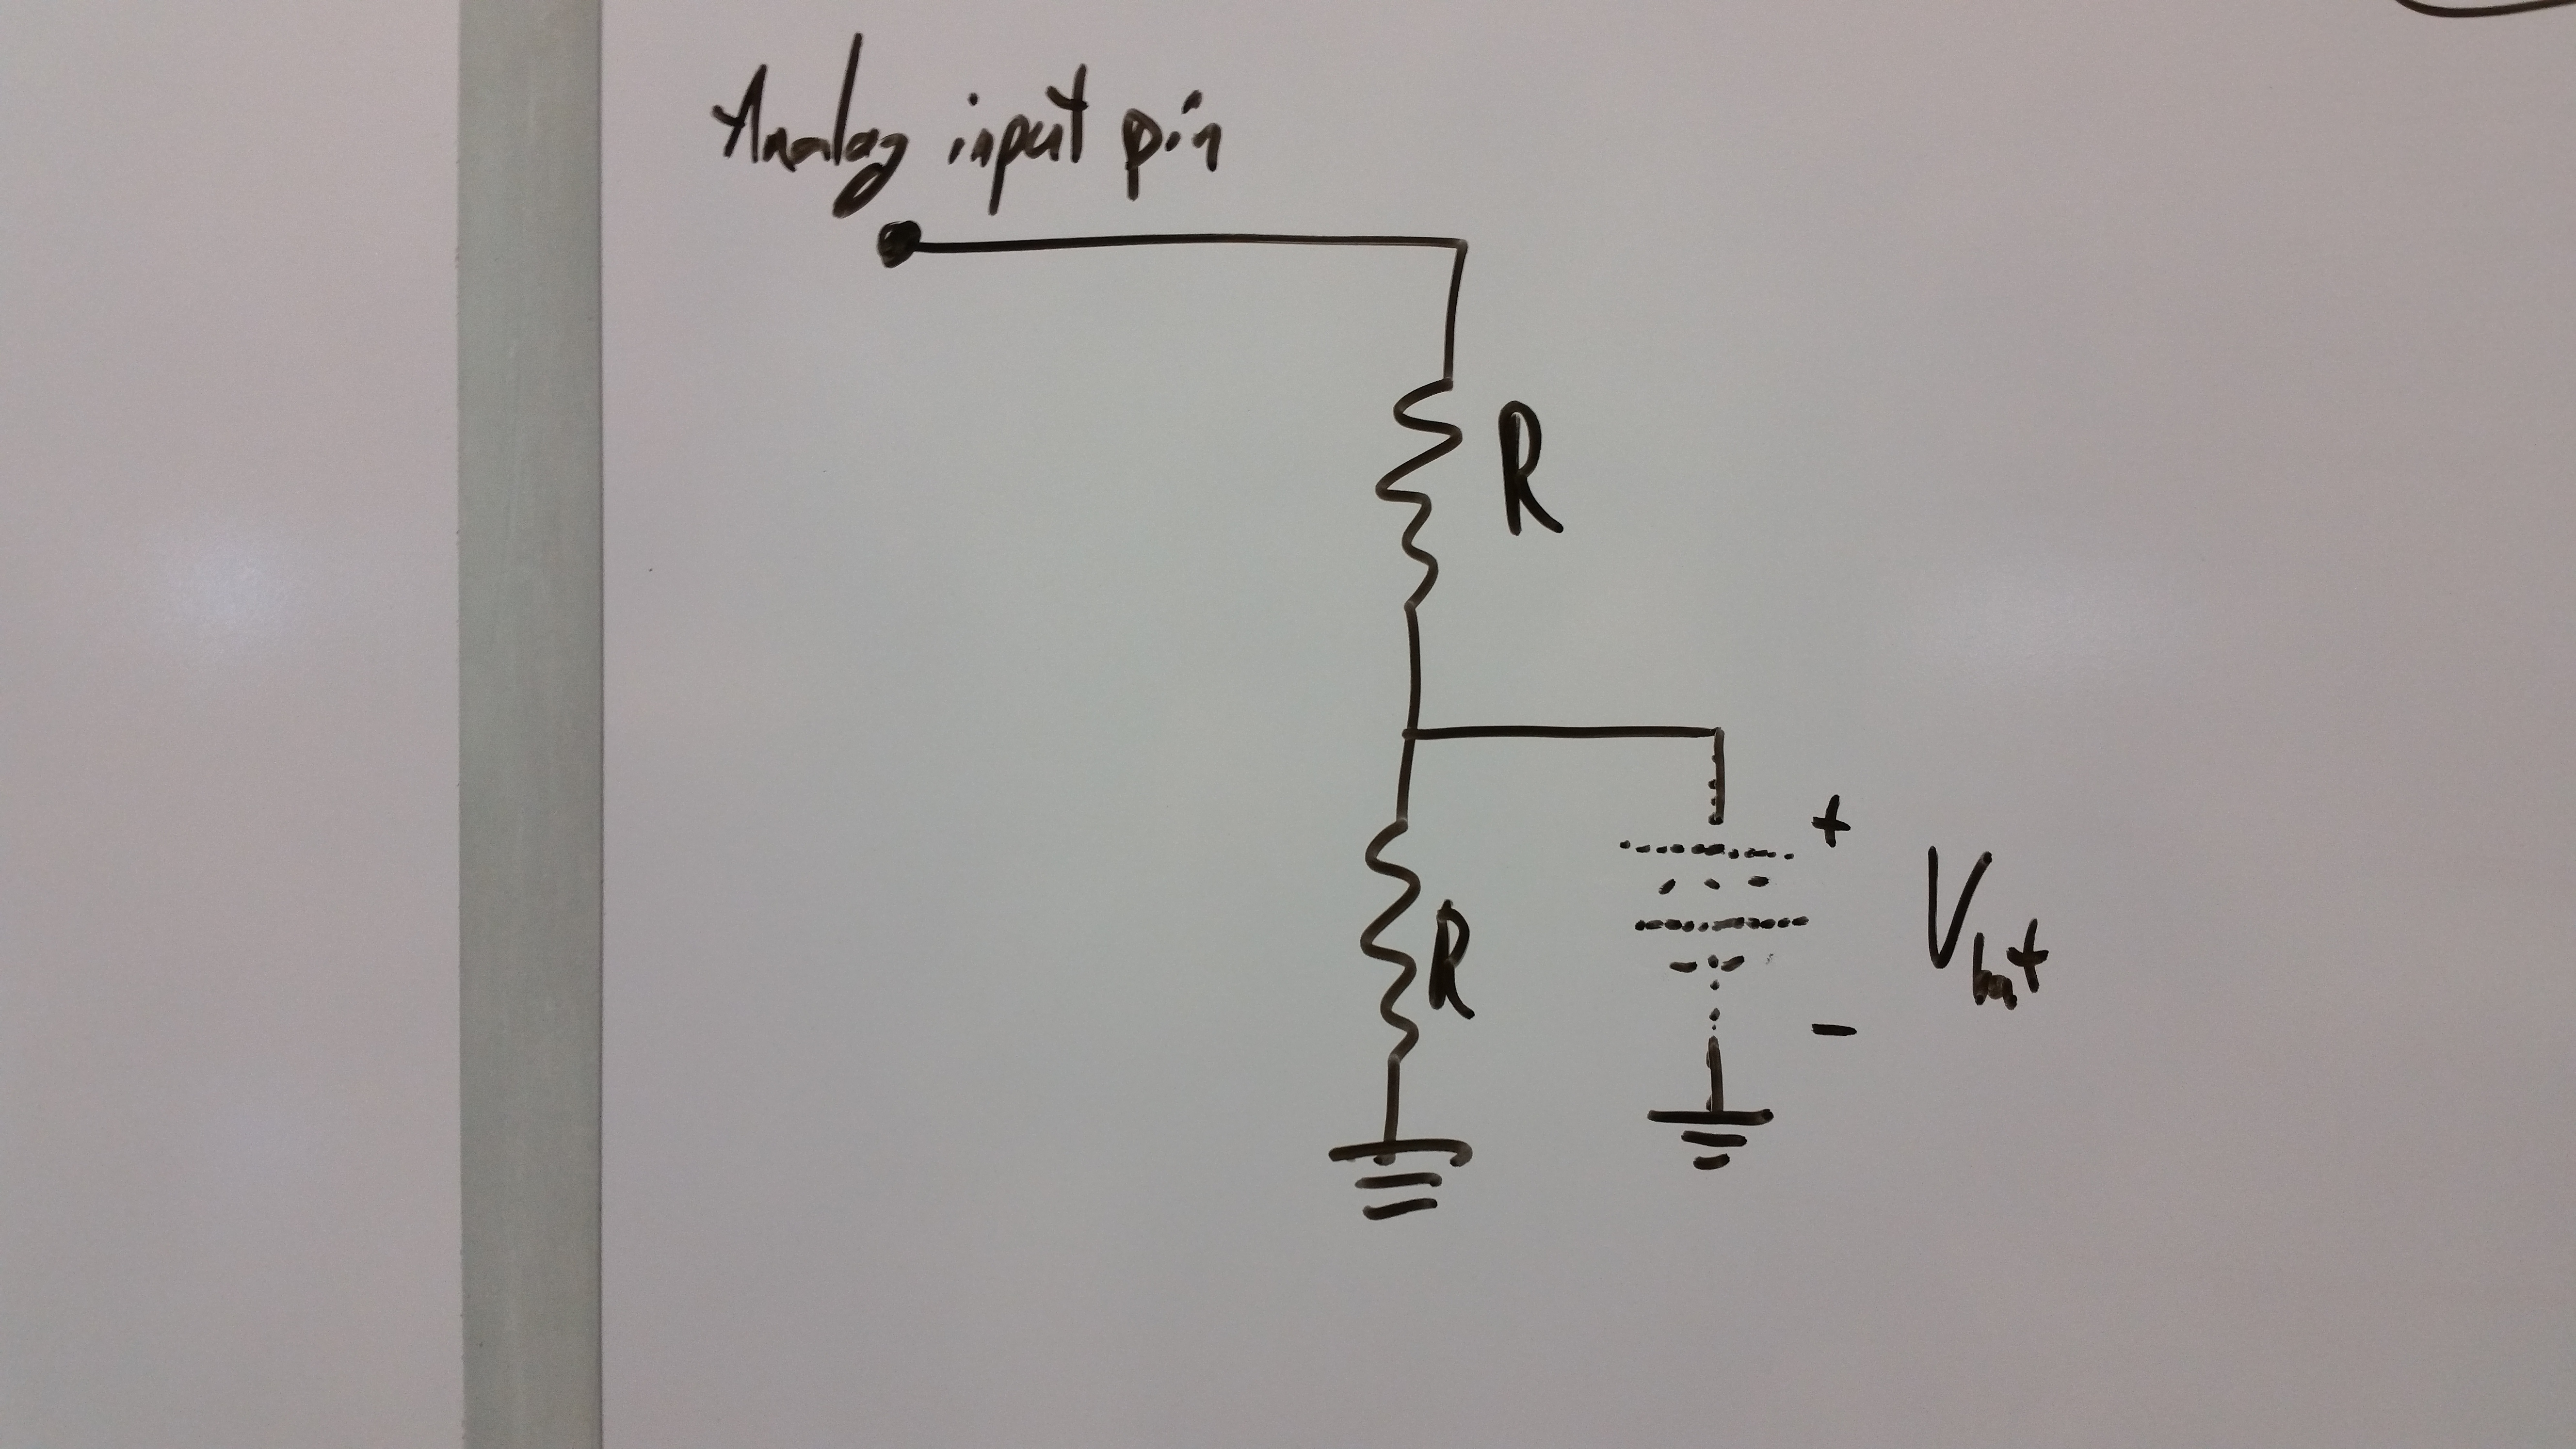 Analog input pin
R
+
R
Vbat
-